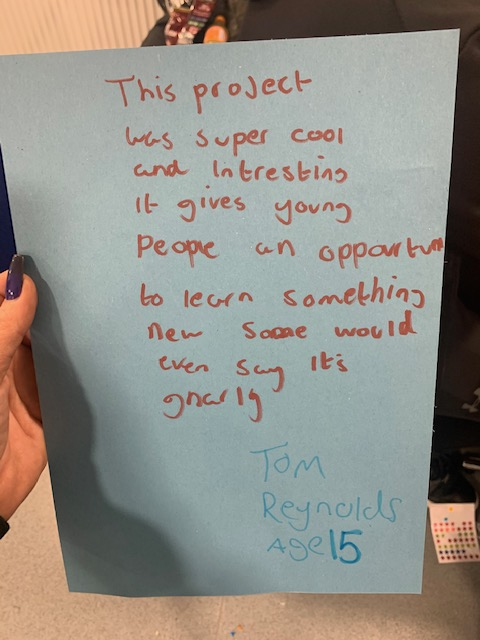 This project
was super cool
and Intresting
It gives young
People an oppourtun
to learn something
new some would
even say It's
gnarly
Tom
Reynolds
Age 15